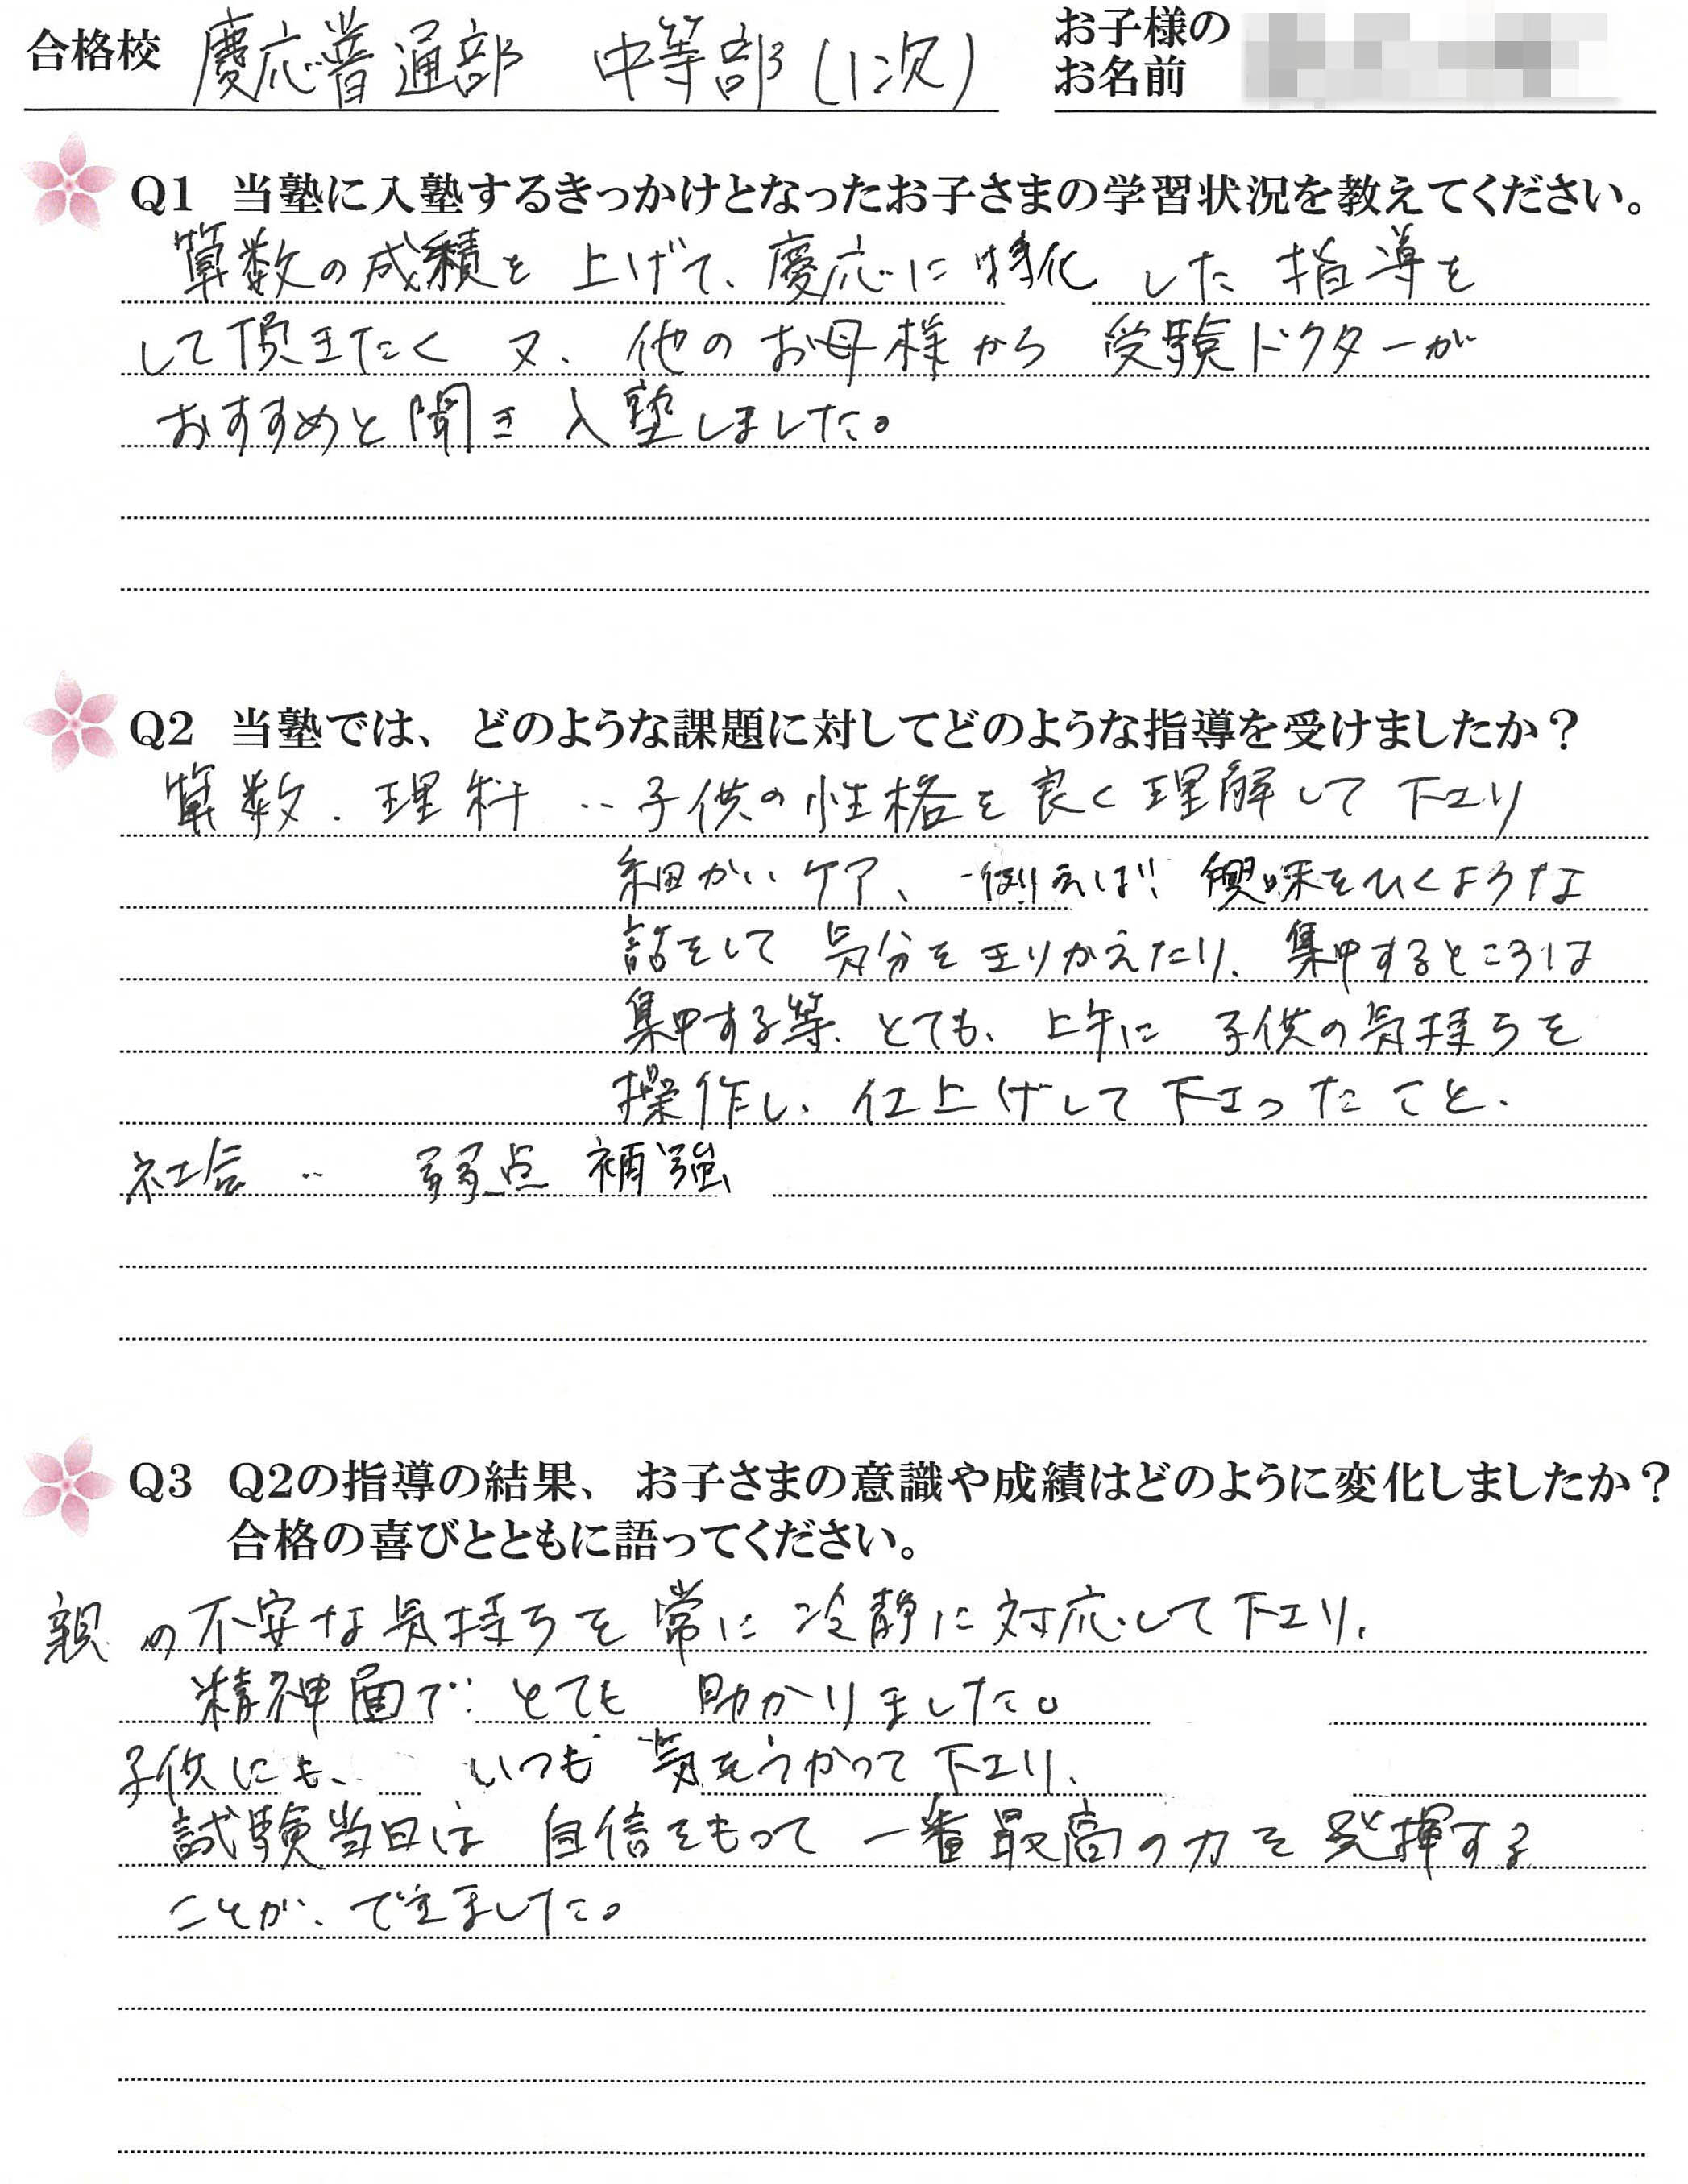 合格校 慶応普通部 中等部(1次)
お子様の
お名前
Q1 当塾に入塾するきっかけとなったお子さまの学習状況を教えてください。
算数の成績を上げて、慶応に特化した指導を
して頂きたく又、他のお母様から受験ドクターが
おすすめと聞き入塾しました。
Q2 当塾では、どのような課題に対してどのような指導を受けましたか？
算数.理科 ‥子供の性格を良く理解して下さり
細かいケア、例えば、興味をひくような
話をして気分を切りかえたり、集中するところは
集中する等、とても、上手に子供の気持ちを
操作し、仕上げして下さったこと.
社会 ‥ 弱点補強
Q3 Q2の指導の結果、お子さまの意識や成績はどのように変化しましたか？
合格の喜びとともに語ってください。
親の不安な気持ちを常に冷静に対応して下さり、
精神面で、とても助かりました。
子供にも、いつも気をつかって下さり、
試験当日は自信をもって一番最高の力を発揮する
ことが、できました。